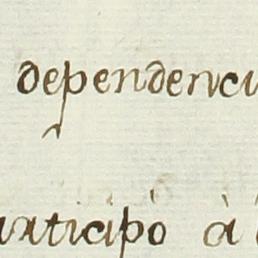 dependenci
articipò à